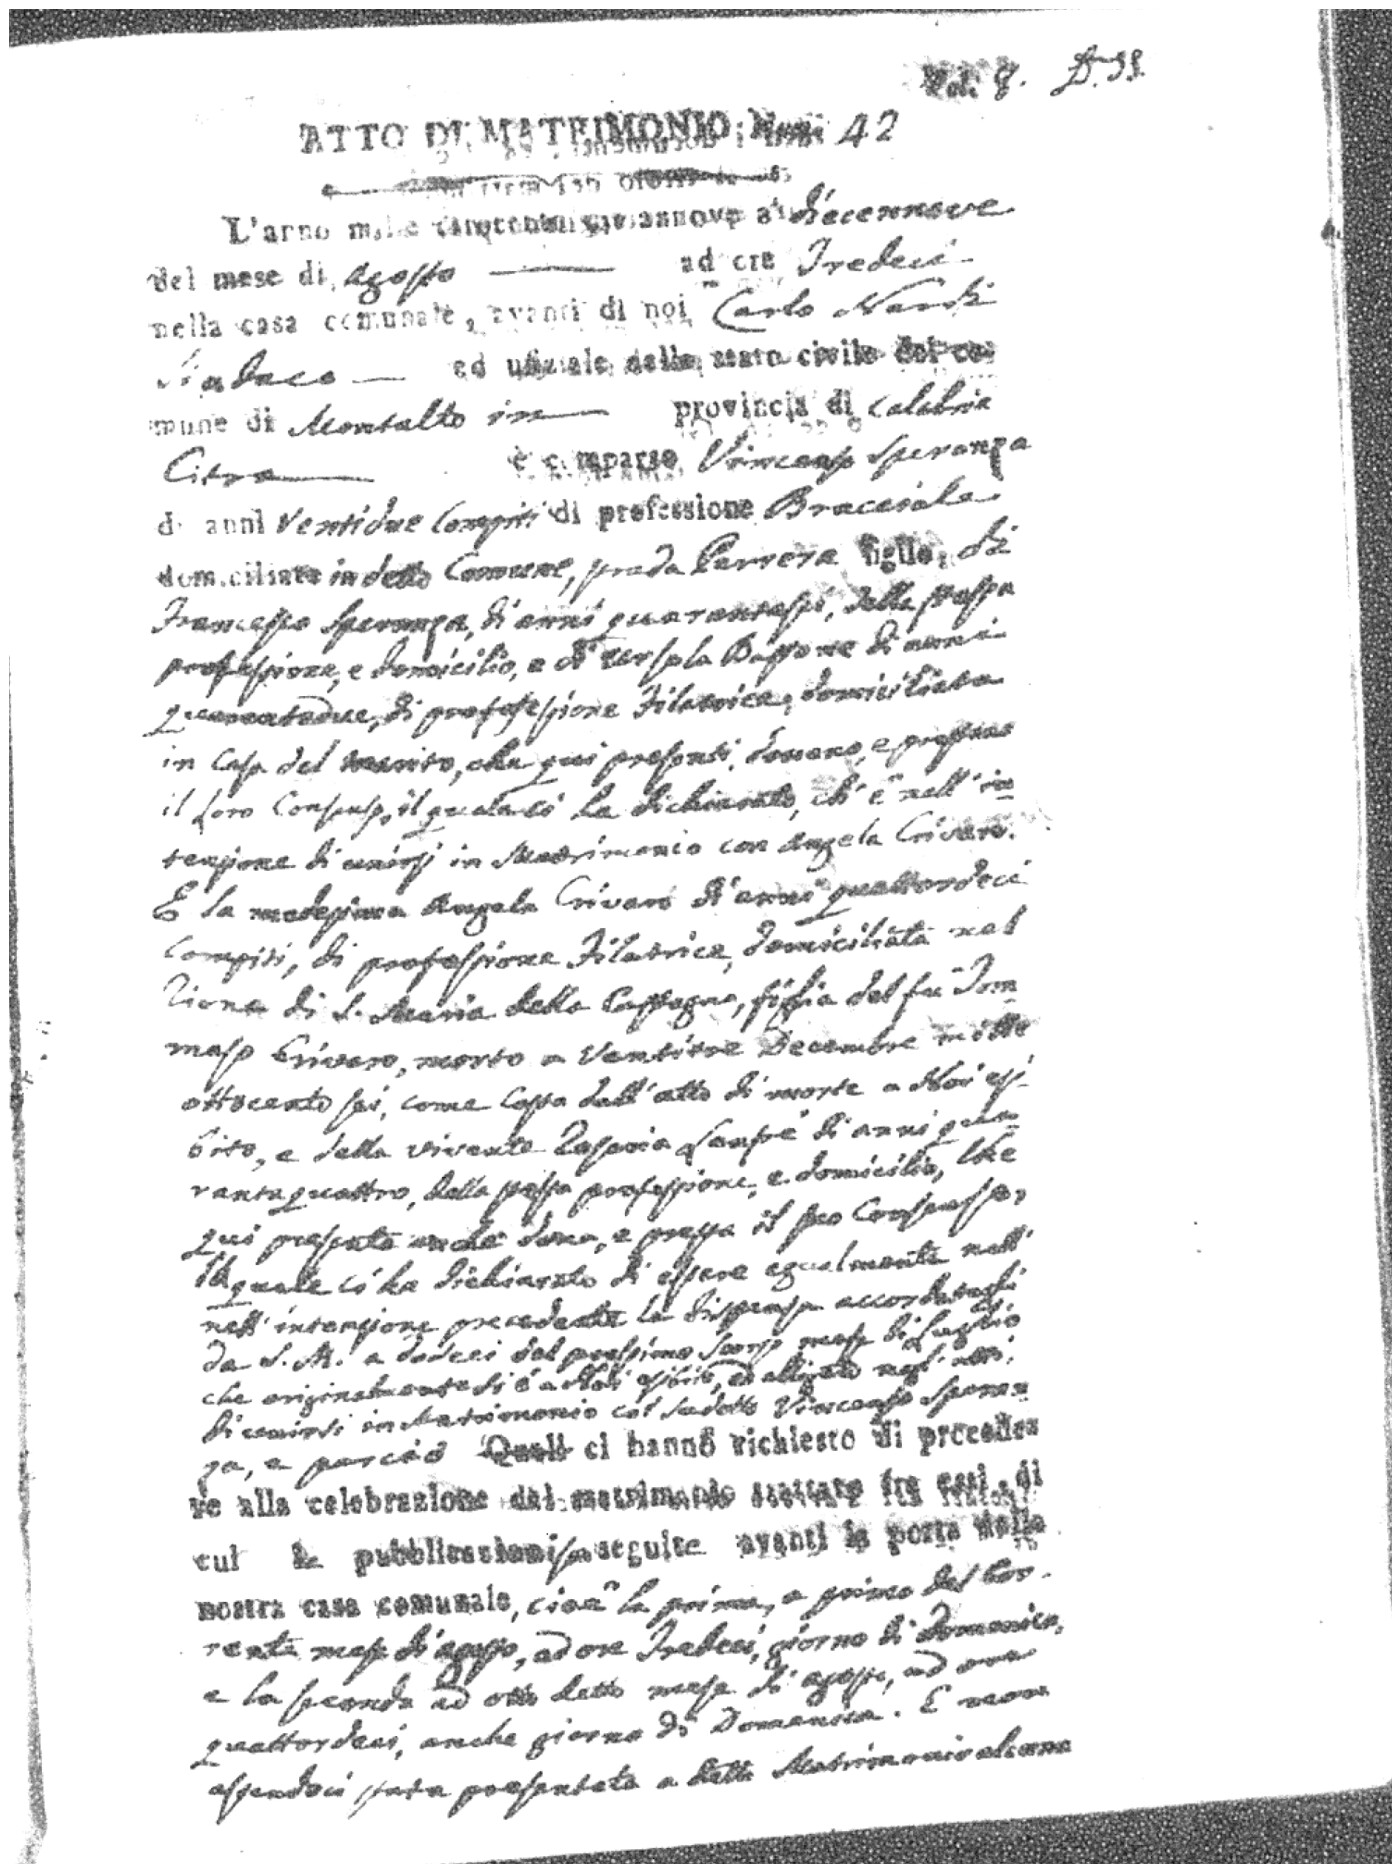 Vol. 8.
ATTO DI MATRIMONIO Num. 42
L'anno mille ottocento diecannove a' diecennove
del mese di Agosto ad ore Tredeci
nella casa comunale, avanti di noi Carlo Nardi
Sindaco ed uffiziale dello stato civile del co-
mune di Montalto in provincia di Calabria
Citra è comparso Vincenzo Speranza
di anni Ventidue Compiti di professione Bracciale
domiciliato in detto Comune, strada Carrera figlio, di
Francesco Speranza, di anni quarantasei, della stessa
professione, e domicilio, e di Orsola Bassone di anni
quarantadue, di professione Filatrice, domiciliata
in Casa del marito, che qui presenti, donano, e prestano
il loro Consenso, il quale ci ha dichiarato, ch'è nell'in-
tenzione di unirsi in Matrimonio con Angela Crivaro.
E la medesima Angela Crivaro di anni quattordeci
Compiti, di professione Filatrice, domiciliata nel
Rione di S. Maria della Castagna, figlia del fù Tom-
maso Crivaro, morto a Ventitre Decembre mille
ottocento sei, come Costa dall'atto di morte a Noi esi-
bito, e della vivente di anni qua-
rantaquattro, della stessa professione, e domicilio, che
qui presente anche dona, e presta il suo Consenso,
la quale ci ha dichiarato di essere egualmente nell'
nell'intenzione precedente la dispensa accordata
da S. M. a dodeci del prossimo scorso mese di Luglio
che originalmente si è a Noi esibito, ed alligato negl'atti,
di unirsi in Matrimonio col sudetto Vincenzo Speran-
za, e perciò Quali ci hanno richiesto di procede-
re alla celebrazione del matrimonio trattato fra essi, di
cui le pubblicazioni son seguite avanti la porta della
nostra casa comunale, cioè la prima, a primo del Cor-
rente mese di Agosto, ad ore Tredeci, giorno di Domenica,
e la seconda ad otto detto mese di Agosto, ad ore
quattordeci, anche giorno di Domenica. E non
essendoci stata presentata a detto Matrimonio alcuna